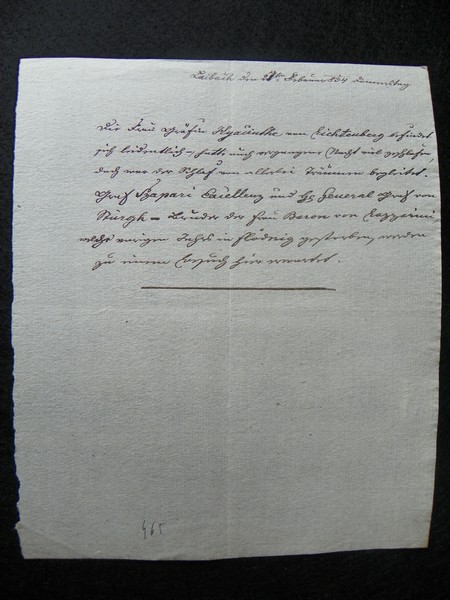 Laibach den 27ten Februar 834 Donnerstag
Die Frau Gräfin Hyacinthe von Lichtenberg befindet
sich leidentlich, hatte auch vergangene Nacht viel geschlafen,
doch war der Schlaf von allerlei Träumen begleitet.
Graf Szapari Excellenz und H: General Graf von
Stürgh – Bruder der Frau Baron von Lazzarini
welche vorigen Jahrs in Flödnig gestorben, werden
zu einem Besuch hier erwartet.
465